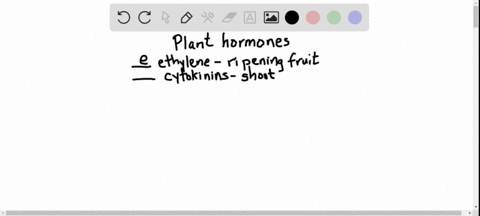 Plant hormones
e ethylene - ripening fruit
__ cytokinins - shoot